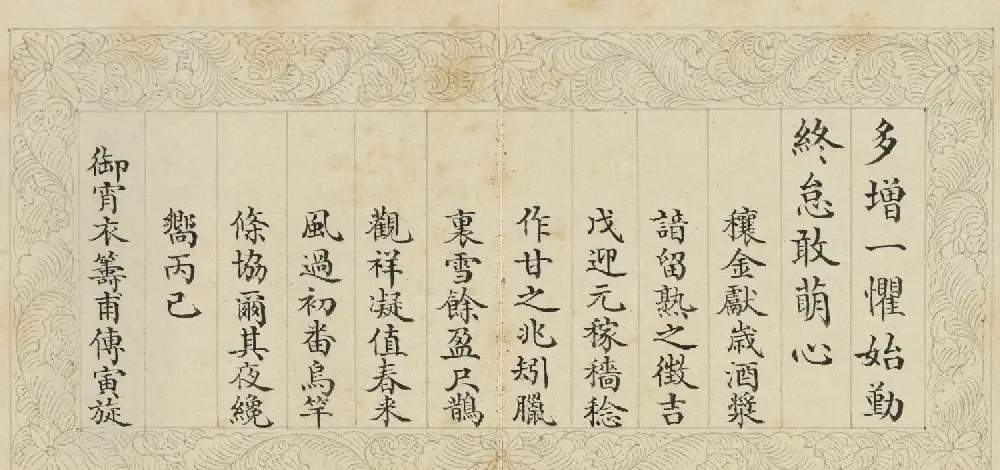 多增一懼始勤
終怠敢萌心
穰金獻歲酒漿
諳留熟之徵吉
戊迎元稼穡稔
作甘之兆矧臘
裏雪餘盈尺鵲
觀祥凝值春来
風過初番烏竿
條協爾其夜纔
嚮丙已
御宵衣籌甫傳寅旋